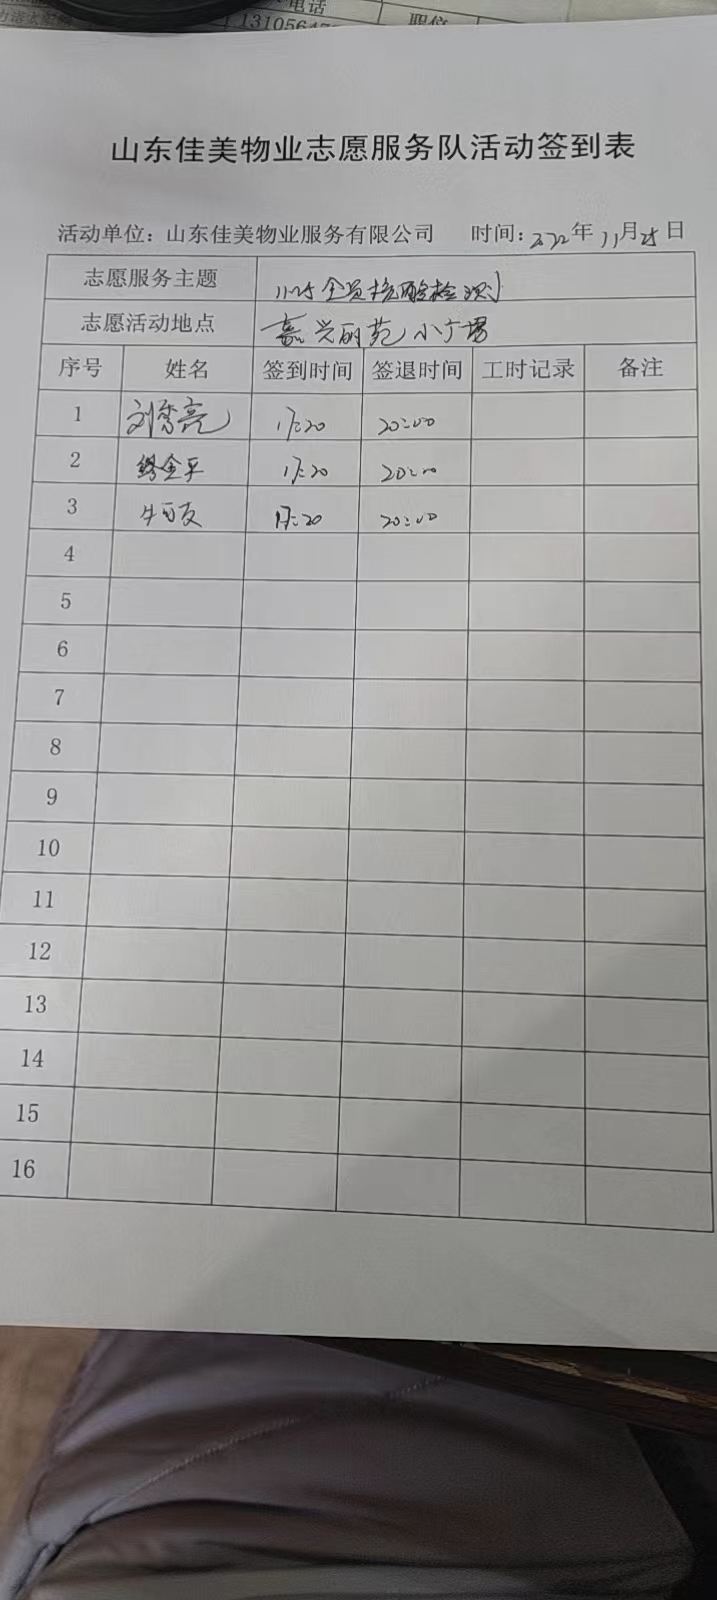 电话
13105647
职位
山东佳美物业志愿服务队活动签到表
活动单位：山东佳美物业服务有限公司 时间：2022年11月25日
志愿服务主题 11.25全员核酸检测
志愿活动地点 嘉兴丽苑小广场
序号 姓名 签到时间 签退时间 工时记录 备注
1 刘秀亮 17:20 20:00
2 金平 17:20 20:00
3 牛 友 17:20 20:00
4
5
6
7
8
9
10
11
12
13
14
15
16